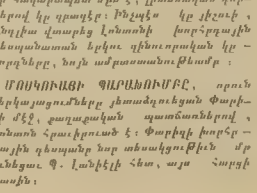 երով կը գրաղէր։ Ինչպէս կը յիշուի,
նդլիա վտարեց Լոնտոնի խորհրդային
եսպանատան երկու զինուորական կը —
որդները, նոյն ամբաստանութեամբ ։
ՄՈՍԿՈՒԱՅԻ ՊԱՐԱԽՈՒՄԲԸ, որուն
երկայացումները յետաձգուեցան Փարի—
ի մէջ, քաղաքական պատճառներով,
ոնտոն հրաւիրուած է։ Փարիզի խորհր —
ային դեսպանը նոր տեսակցութիւն մը
ւնեցաւ Պ. Լանիէլի հետ, այս հարցի
ասին։